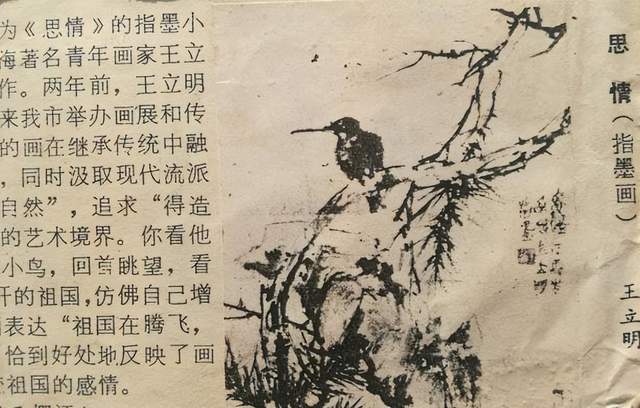 为《思情》的指墨小
海著名青年画家王立
作。两年前，王立明
来我市举办画展和传
的画在继承传统中融
，同时汲取现代流派
自然”，追求“得造
的艺术境界。你看他
小鸟，回首眺望，看
的祖国，仿佛自己增
表达“祖国在腾飞，
恰到好处地反映了画
祖国的感情。
思情（指墨画）
王立明